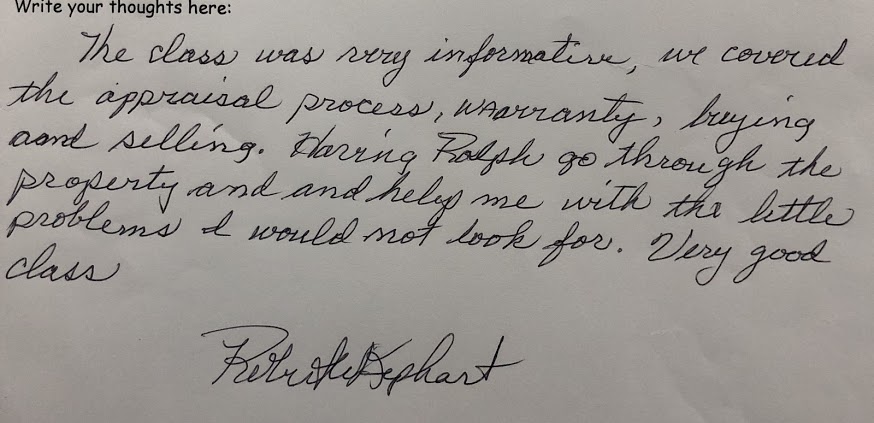 Write your thoughts here:
The class was very informative, we covered
the appraisal process, warranty, buying
aand selling. Having Ralph go through the
property and and help me with the little
problems I would not look for. Very good
class
Kephart